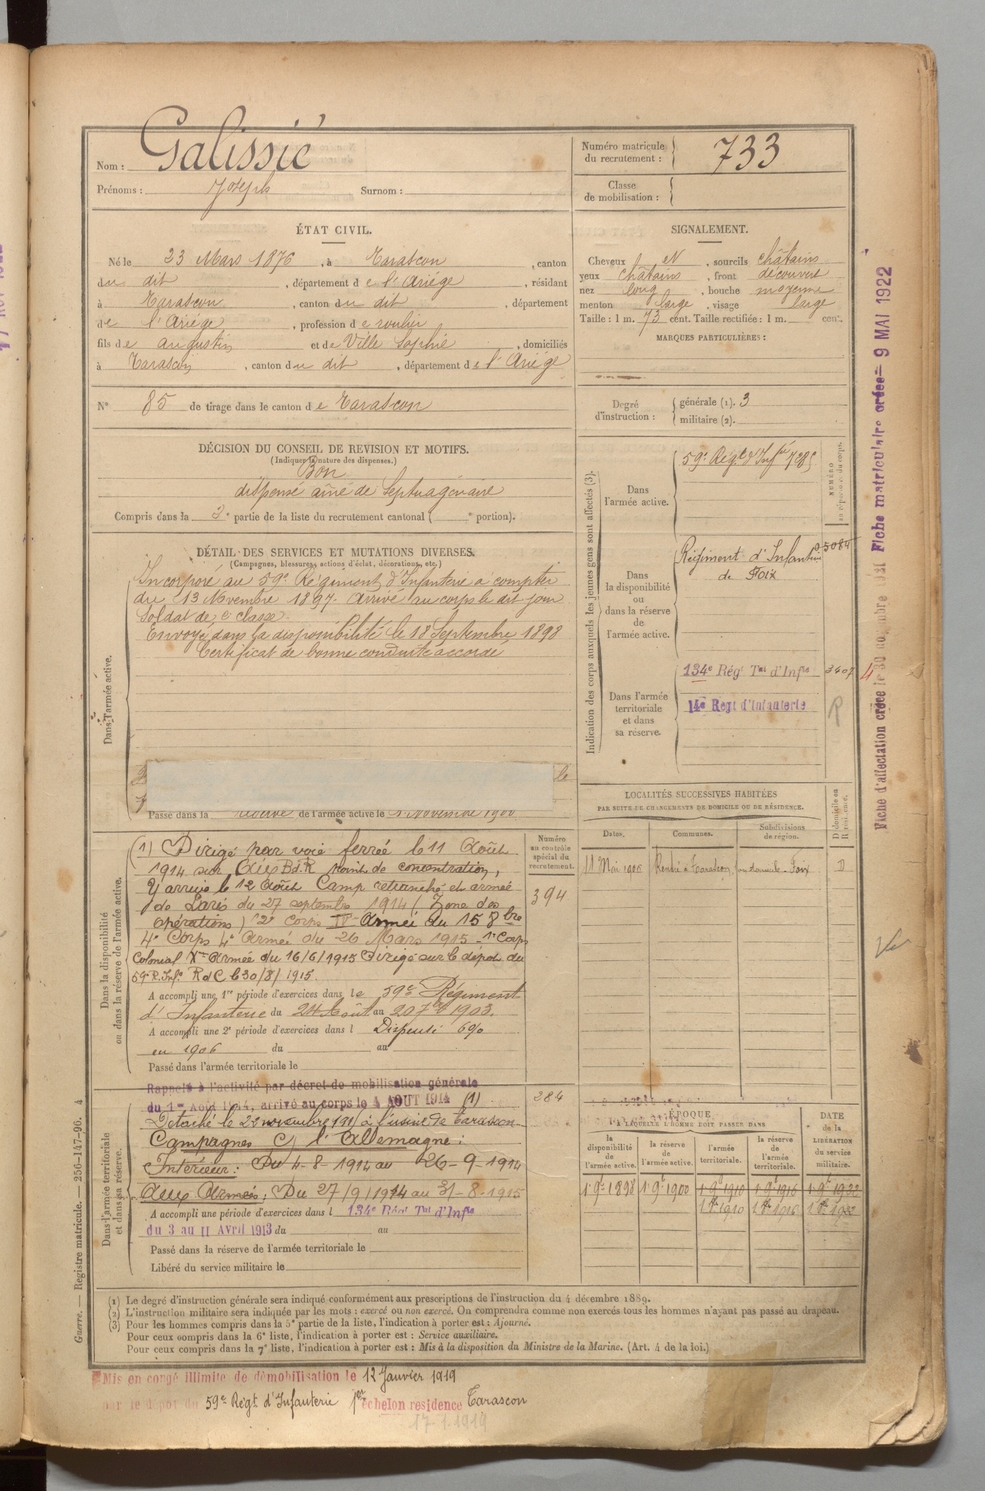 Nom : Galissié
Prénoms : Joseph Surnom :
Numéro matricule du recrutement : 733
Classe de mobilisation :
ÉTAT CIVIL.
Né le 23 Mars 1876, à Tarascon, canton
du dit, département de l'Ariége, résidant
à Tarascon, canton du dit, département
de l'Ariége, profession de roulier
fils de Augustin et de Ville Sophie, domiciliés
à Tarascon, canton du dit, département de l'Ariége
SIGNALEMENT.
Cheveux et, sourcils châtains
yeux châtains, front découvert
nez long, bouche moyenne
menton large, visage large
Taille : 1 m. 73 cent. Taille rectifiée : 1 m. cent.
MARQUES PARTICULIÈRES :
N° 85 de tirage dans le canton de Tarascon
Degré d'instruction : générale (1). 3
militaire (2).
DÉCISION DU CONSEIL DE REVISION ET MOTIFS.
(Indiquer la nature des dispenses.)
Bon
dispensé aîné de septuagénaire
Compris dans la 2e partie de la liste du recrutement cantonal ( e portion).
DÉTAIL DES SERVICES ET MUTATIONS DIVERSES.
(Campagnes, blessures, actions d'éclat, décorations, etc.)
Dans l'armée active.
Incorporé au 59e Régiment d'Infanterie a compter
du 13 Novembre 1897. Arrivé au corps le dit jour
Soldat de 2e classe.
Envoyé dans la disponibilité le 18 Septembre 1898
Certificat de bonne conduite accordé
Passé dans la réserve de l'armée active le 1 Novembre 1900
Indication des corps auxquels les jeunes gens sont affectés (3).
Dans l'armée active.
59e Régt d'Inftie
NUMÉRO
Dans la disponibilité ou dans la réserve de l'armée active.
Régiment d'Infanterie
de Foix
Dans l'armée territoriale et dans sa réserve.
134e Régt Tal d'Infie
14e Régt d'Infanterie
R
LOCALITÉS SUCCESSIVES HABITÉES
PAR SUITE DE CHANGEMENTS DE DOMICILE OU DE RÉSIDENCE.
Dates. Communes. Subdivisions de région. D domicile ou R résidence.
Tarascon Foix D
Dans la disponibilité ou dans la réserve de l'armée active.
Numéro au contrôle spécial du recrutement.
394
(1) Dirigé par voie ferrée le 11 Août
1914 sur point de concentration,
y arrivé le 12 Août Camp retranché et armée
de Paris du 27 septembre 1914 (Zone des
opérations) 2e Corps IVe Armée du 15 8bre
4e Corps 4e Armée du 26 Mars 1915 1er Corps
Colonial Armée du 16/6/1915 Dirigé sur le dépot du
59e R. Infie R d C le 30/8/1915.
A accompli une 1re période d'exercices dans le 59e Régiment
d'Infanterie du 24 Août au 20 1903.
A accompli une 2e période d'exercices dans l Dispensé
en 1906 du au
Passé dans l'armée territoriale le
Dans l'armée territoriale et dans sa réserve.
284
Rappelé à l'activité par décret de mobilisation générale
du 1er Août 1914, arrivé au corps le 4 AOUT 1914 (1)
Détaché le 22 novembre à l'usine de Tarascon
Campagnes C/ l'Allemagne :
Intérieur : Du 4-8-1914 au 26-9-1914
Aux Armées : Du 27/9/1914 au 31-8-1915
A accompli une période d'exercices dans l 134e Régt Tal d'Infie
du 3 au 11 Avril 1913 du au
Passé dans la réserve de l'armée territoriale le
Libéré du service militaire le
ÉPOQUE
A LAQUELLE L'HOMME DOIT PASSER DANS
la disponibilité de l'armée active. la réserve de l'armée active. l'armée territoriale. la réserve de l'armée territoriale. DATE de la LIBÉRATION du service militaire.
(1) Le degré d'instruction générale sera indiqué conformément aux prescriptions de l'instruction du 4 décembre 1889.
(2) L'instruction militaire sera indiquée par les mots : exercé ou non exercé. On comprendra comme non exercés tous les hommes n'ayant pas passé au drapeau.
(3) Pour les hommes compris dans la 5e partie de la liste, l'indication à porter est : Ajourné.
Pour ceux compris dans la 6e liste, l'indication à porter est : Service auxiliaire.
Pour ceux compris dans la 7e liste, l'indication à porter est : Mis à la disposition du Ministre de la Marine. (Art. 4 de la loi.)
Mis en congé illimité de démobilisation le 12 Janvier 1919
par le dépot du 59e Régt d'Infanterie 1er échelon residence Tarascon
17-1-1919
Guerre. — Registre matricule. — 256-147-96. 4
Fiche matriculaire créée 9 MAI 1922
Fiche d'affectation créée le